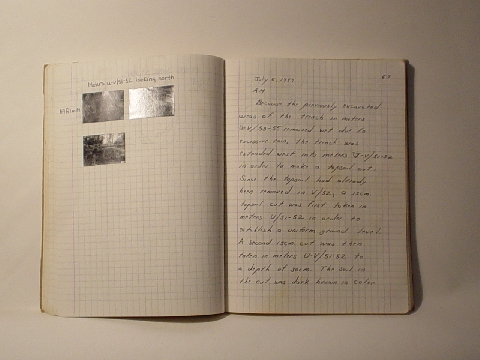 Meters U-V/51-52, looking north
July 5, 1957
63
AM
Because the previously excavated
area of the trench in meters
U-V/53-55 remained wet due to
excessive rain, the trench was
extended west into meters
in order to make a topsoil cut.
Since the topsoil had already
been removed in V/52, a 15cm
topsoil cut was first taken in
meters U/51-52 in order to
establish a uniform ground level.
A second 15cm cut was then
taken in meters U-V/51-52 to
a depth of 30cm. The soil in
the cut was dark brown in color